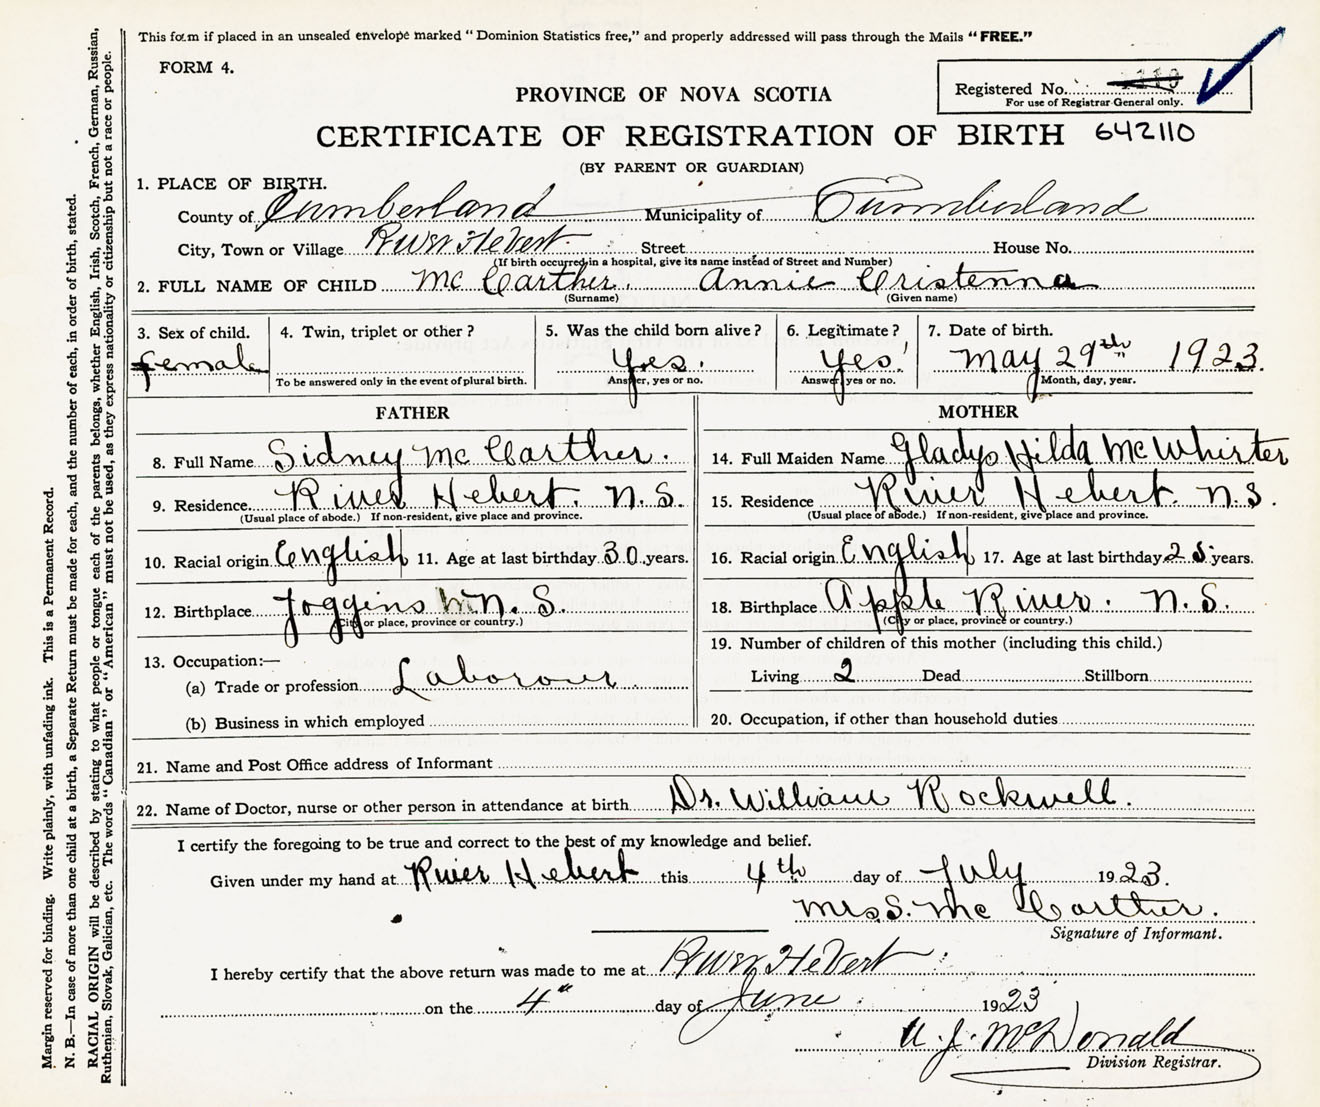 This form if placed in an unsealed envelope marked "Dominion Statistics free," and properly addressed will pass through the Mails "FREE."
FORM 4.
Registered No.
For use of Registrar General only.
PROVINCE OF NOVA SCOTIA
CERTIFICATE OF REGISTRATION OF BIRTH 642110
(BY PARENT OR GUARDIAN)
1. PLACE OF BIRTH.
County of Cumberland Municipality of Cumberland
City, Town or Village River Hebert Street House No.
(If birth occurred in a hospital, give its name instead of Street and Number)
2. FULL NAME OF CHILD Mc Carther. Annie Cristenna
(Surname) (Given name)
3. Sex of child. 4. Twin, triplet or other? 5. Was the child born alive? 6. Legitimate? 7. Date of birth.
female yes. yes! may 29th 1923.
To be answered only in the event of plural birth. Answer, yes or no. Answer, yes or no. Month, day, year.
FATHER
8. Full Name Sidney Mc Carther.
9. Residence River Hebert. N.S.
(Usual place of abode.) If non-resident, give place and province.
10. Racial origin English 11. Age at last birthday 30 years.
12. Birthplace Joggins N. S.
(City or place, province or country.)
13. Occupation:—
(a) Trade or profession Laborour
(b) Business in which employed
MOTHER
14. Full Maiden Name Gladys Hilda McWhirter
15. Residence River Hebert. N.S.
(Usual place of abode.) If non-resident, give place and province.
16. Racial origin English 17. Age at last birthday 25 years.
18. Birthplace Apple River. N.S.
(City or place, province or country.)
19. Number of children of this mother (including this child.)
Living 2 Dead Stillborn
20. Occupation, if other than household duties
21. Name and Post Office address of Informant
22. Name of Doctor, nurse or other person in attendance at birth Dr. William Rockwell.
I certify the foregoing to be true and correct to the best of my knowledge and belief.
Given under my hand at River Hebert this 4th day of July 1923.
Mrs S. Mc Carther.
Signature of Informant.
I hereby certify that the above return was made to me at River Hebert
on the 4" day of June 1923
McDonald
Division Registrar.
Margin reserved for binding. Write plainly, with unfading ink. This is a Permanent Record.
N. B.—In case of more than one child at a birth, a Separate Return must be made for each, and the number of each, in order of birth, stated.
RACIAL ORIGIN will be described by stating to what people or tongue each of the parents belongs, whether English, Irish, Scotch, French, German, Russian,
Ruthenian, Slovak, Galician, etc. The words "Canadian" or "American" must not be used, as they express nationality or citizenship but not a race or people.